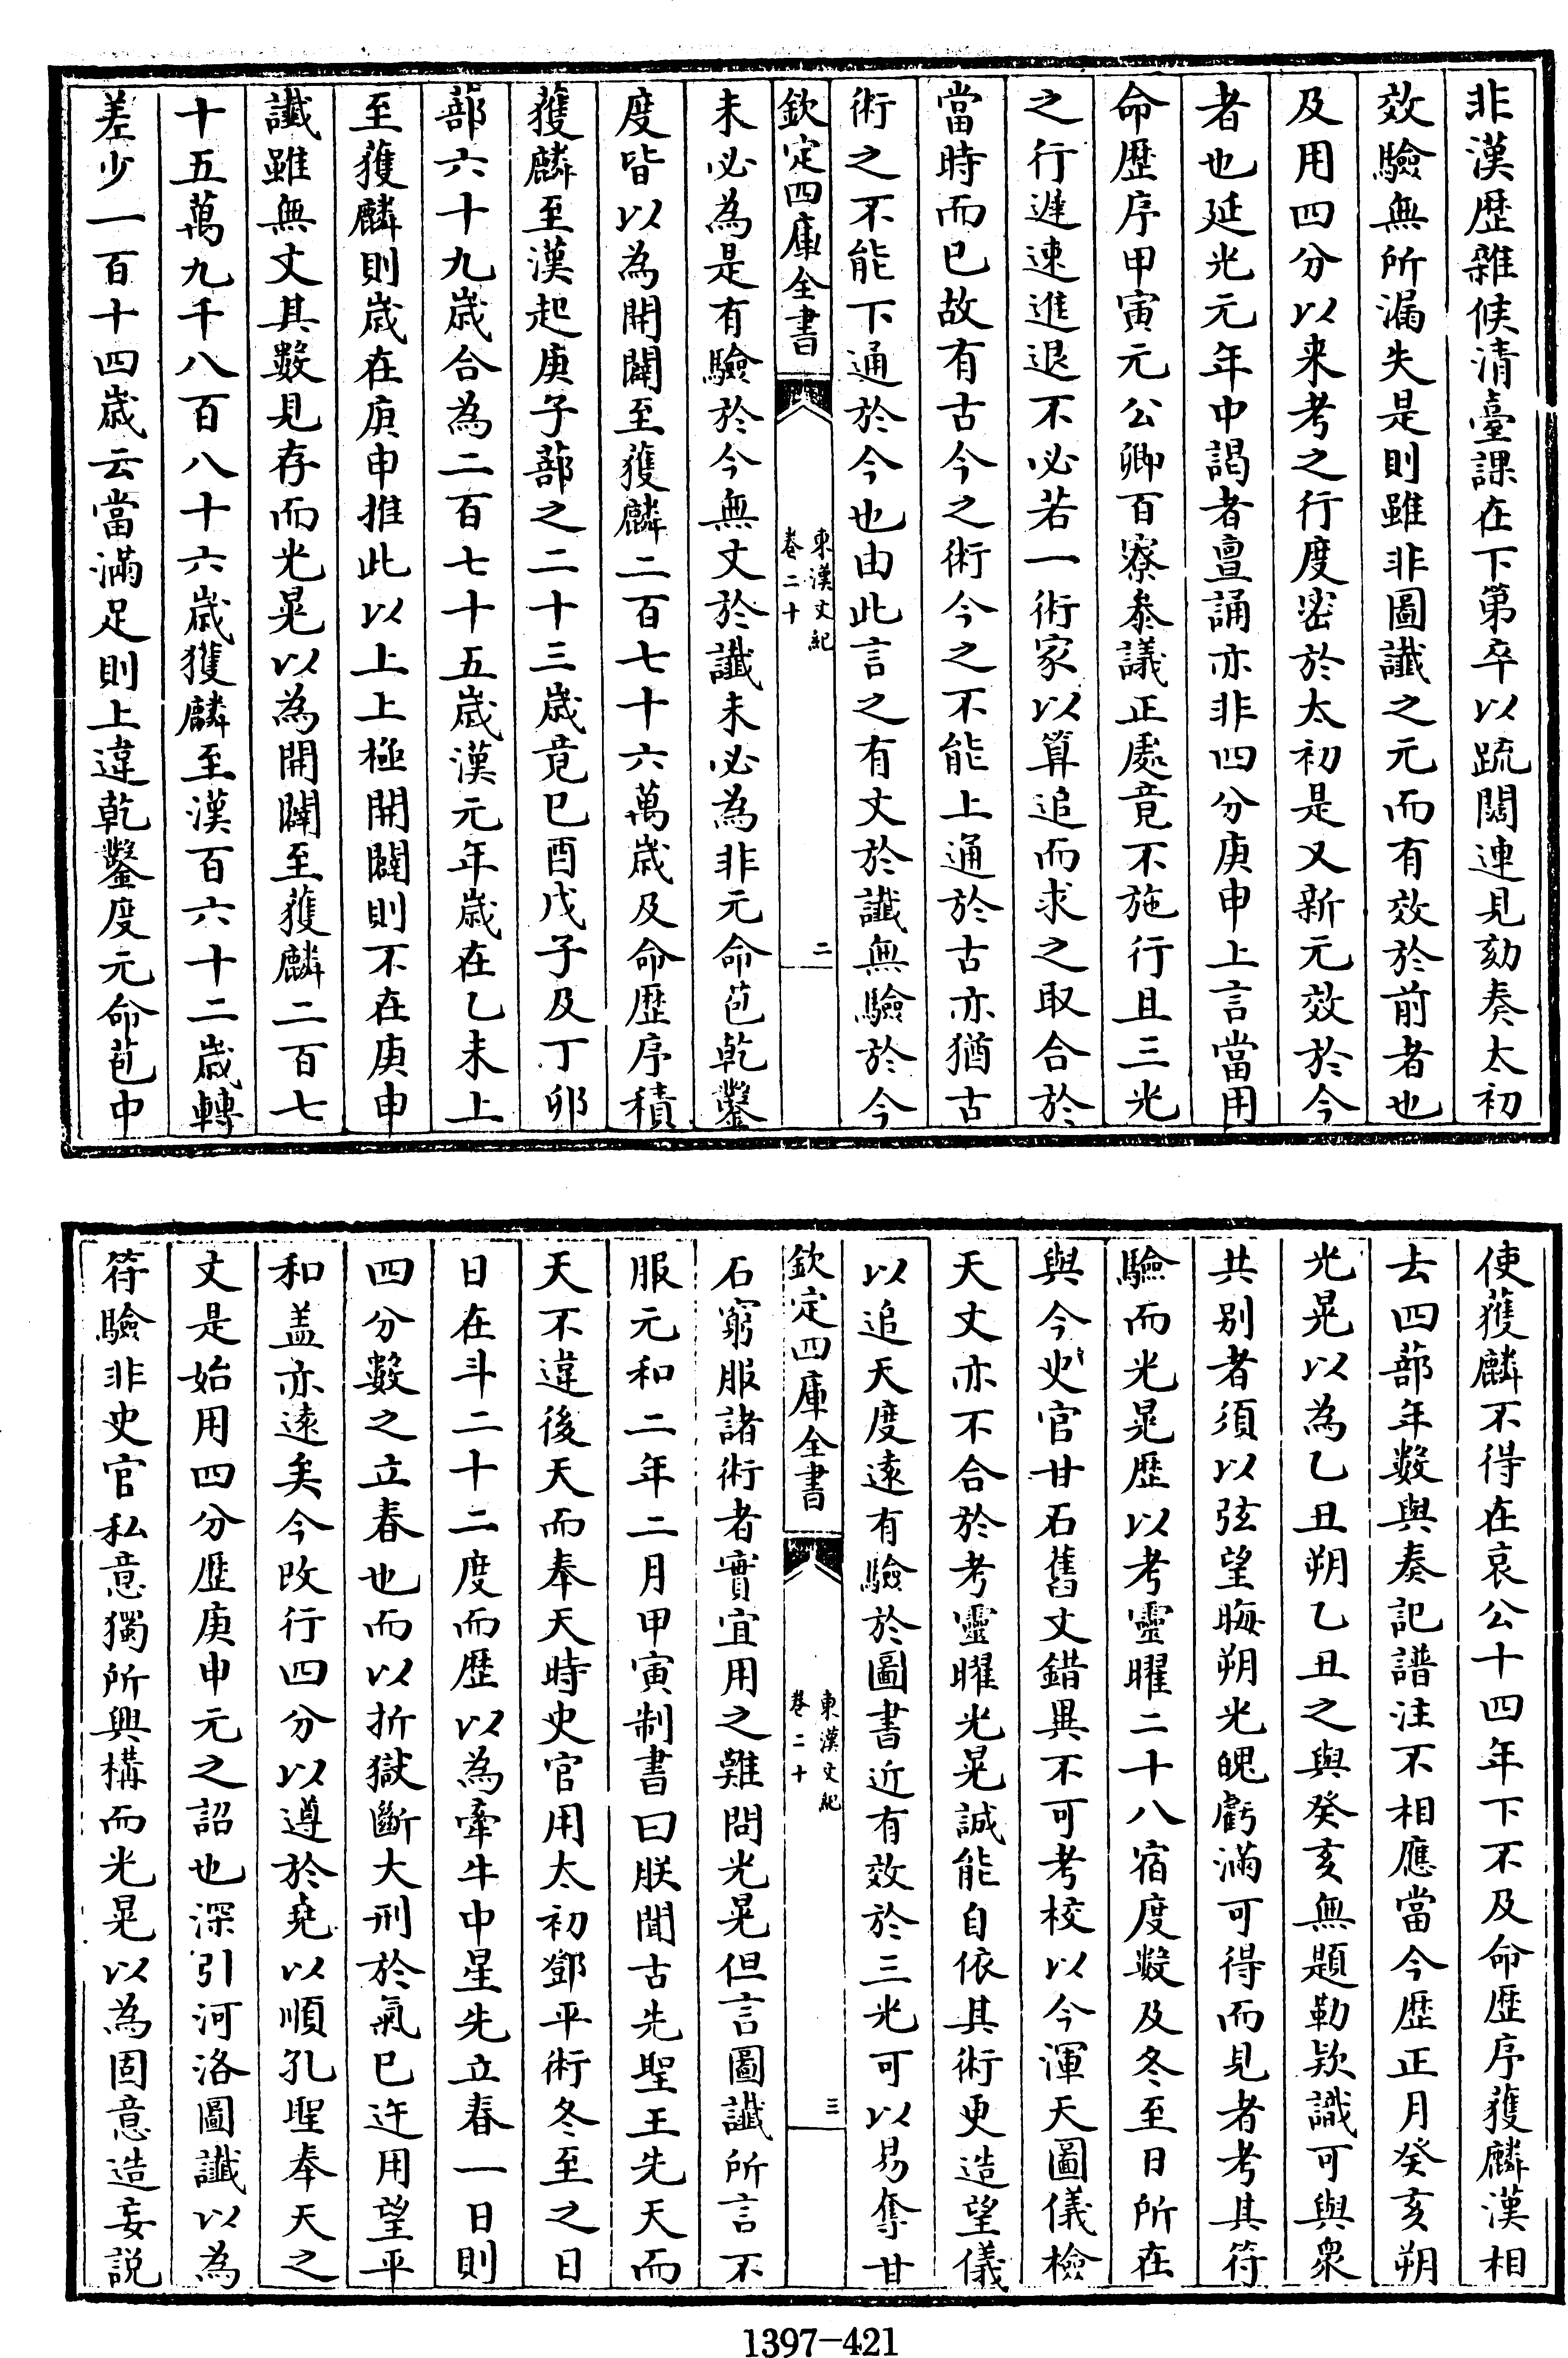 非漢歴雜候清臺課在下第卒以疏闊連見劾奏太初
效驗無所漏失是則雖非圖讖之元而有效於前者也
及用四分以来考之行度密於太初是又新元效於今
者也延光元年中謁者亶誦亦非四分庚申上言當用
命歴序甲寅元公卿百寮叅議正處竟不施行且三光
之行遲速進退不必若一術家以算追而求之取合於
當時而已故有古今之術今之不能上通於古亦猶古
術之不能下通於今也由此言之有文於讖無驗於今
欽定四庫全書
東漢文紀
卷二十
二
未必為是有驗於今無文於讖未必為非元命苞乾鑿
度皆以為開闢至獲麟二百七十六萬歲及命歴序積
獲麟至漢起庚子蔀之二十三歲竟已酉戊子及丁卯
蔀六十九歲合為二百七十五歲漢元年歲在乙未上
至獲麟則歲在庚申推此以上上極開闢則不在庚申
讖雖無文其數見存而光晃以為開闢至獲麟二百七
十五萬九千八百八十六歲獲麟至漢百六十二歲轉
差少一百十四歲云當滿足則上違乾鑿度元命苞中
使獲麟不得在哀公十四年下不及命歴序獲麟漢相
去四蔀年數與奏記譜注不相應當今歴正月癸亥朔
光晃以為乙丑朔乙丑之與癸亥無題勒欵識可與衆
共别者須以弦望晦朔光魄虧滿可得而見者考其符
驗而光晃歴以考靈曜二十八宿度數及冬至日所在
與今史官甘石舊文錯異不可考校以今渾天圖儀檢
天文亦不合於考靈曜光晃誠能自依其術更造望儀
以追天度逺有驗於圖書近有效於三光可以易奪甘
欽定四庫全書
東漢文紀
卷二十
三
石窮服諸術者實宜用之難問光晃但言圖讖所言不
服元和二年二月甲寅制書曰朕聞古先聖王先天而
天不違後天而奉天時史官用太初鄧平術冬至之日
日在斗二十二度而歴以為牽牛中星先立春一日則
四分數之立春也而以折獄斷大刑於氣已迕用望平
和盖亦逺矣今改行四分以遵於堯以順孔聖奉天之
文是始用四分歴庚申元之詔也深引河洛圖讖以為
符驗非史官私意獨所興構而光晃以為固意造妄説
1397-421